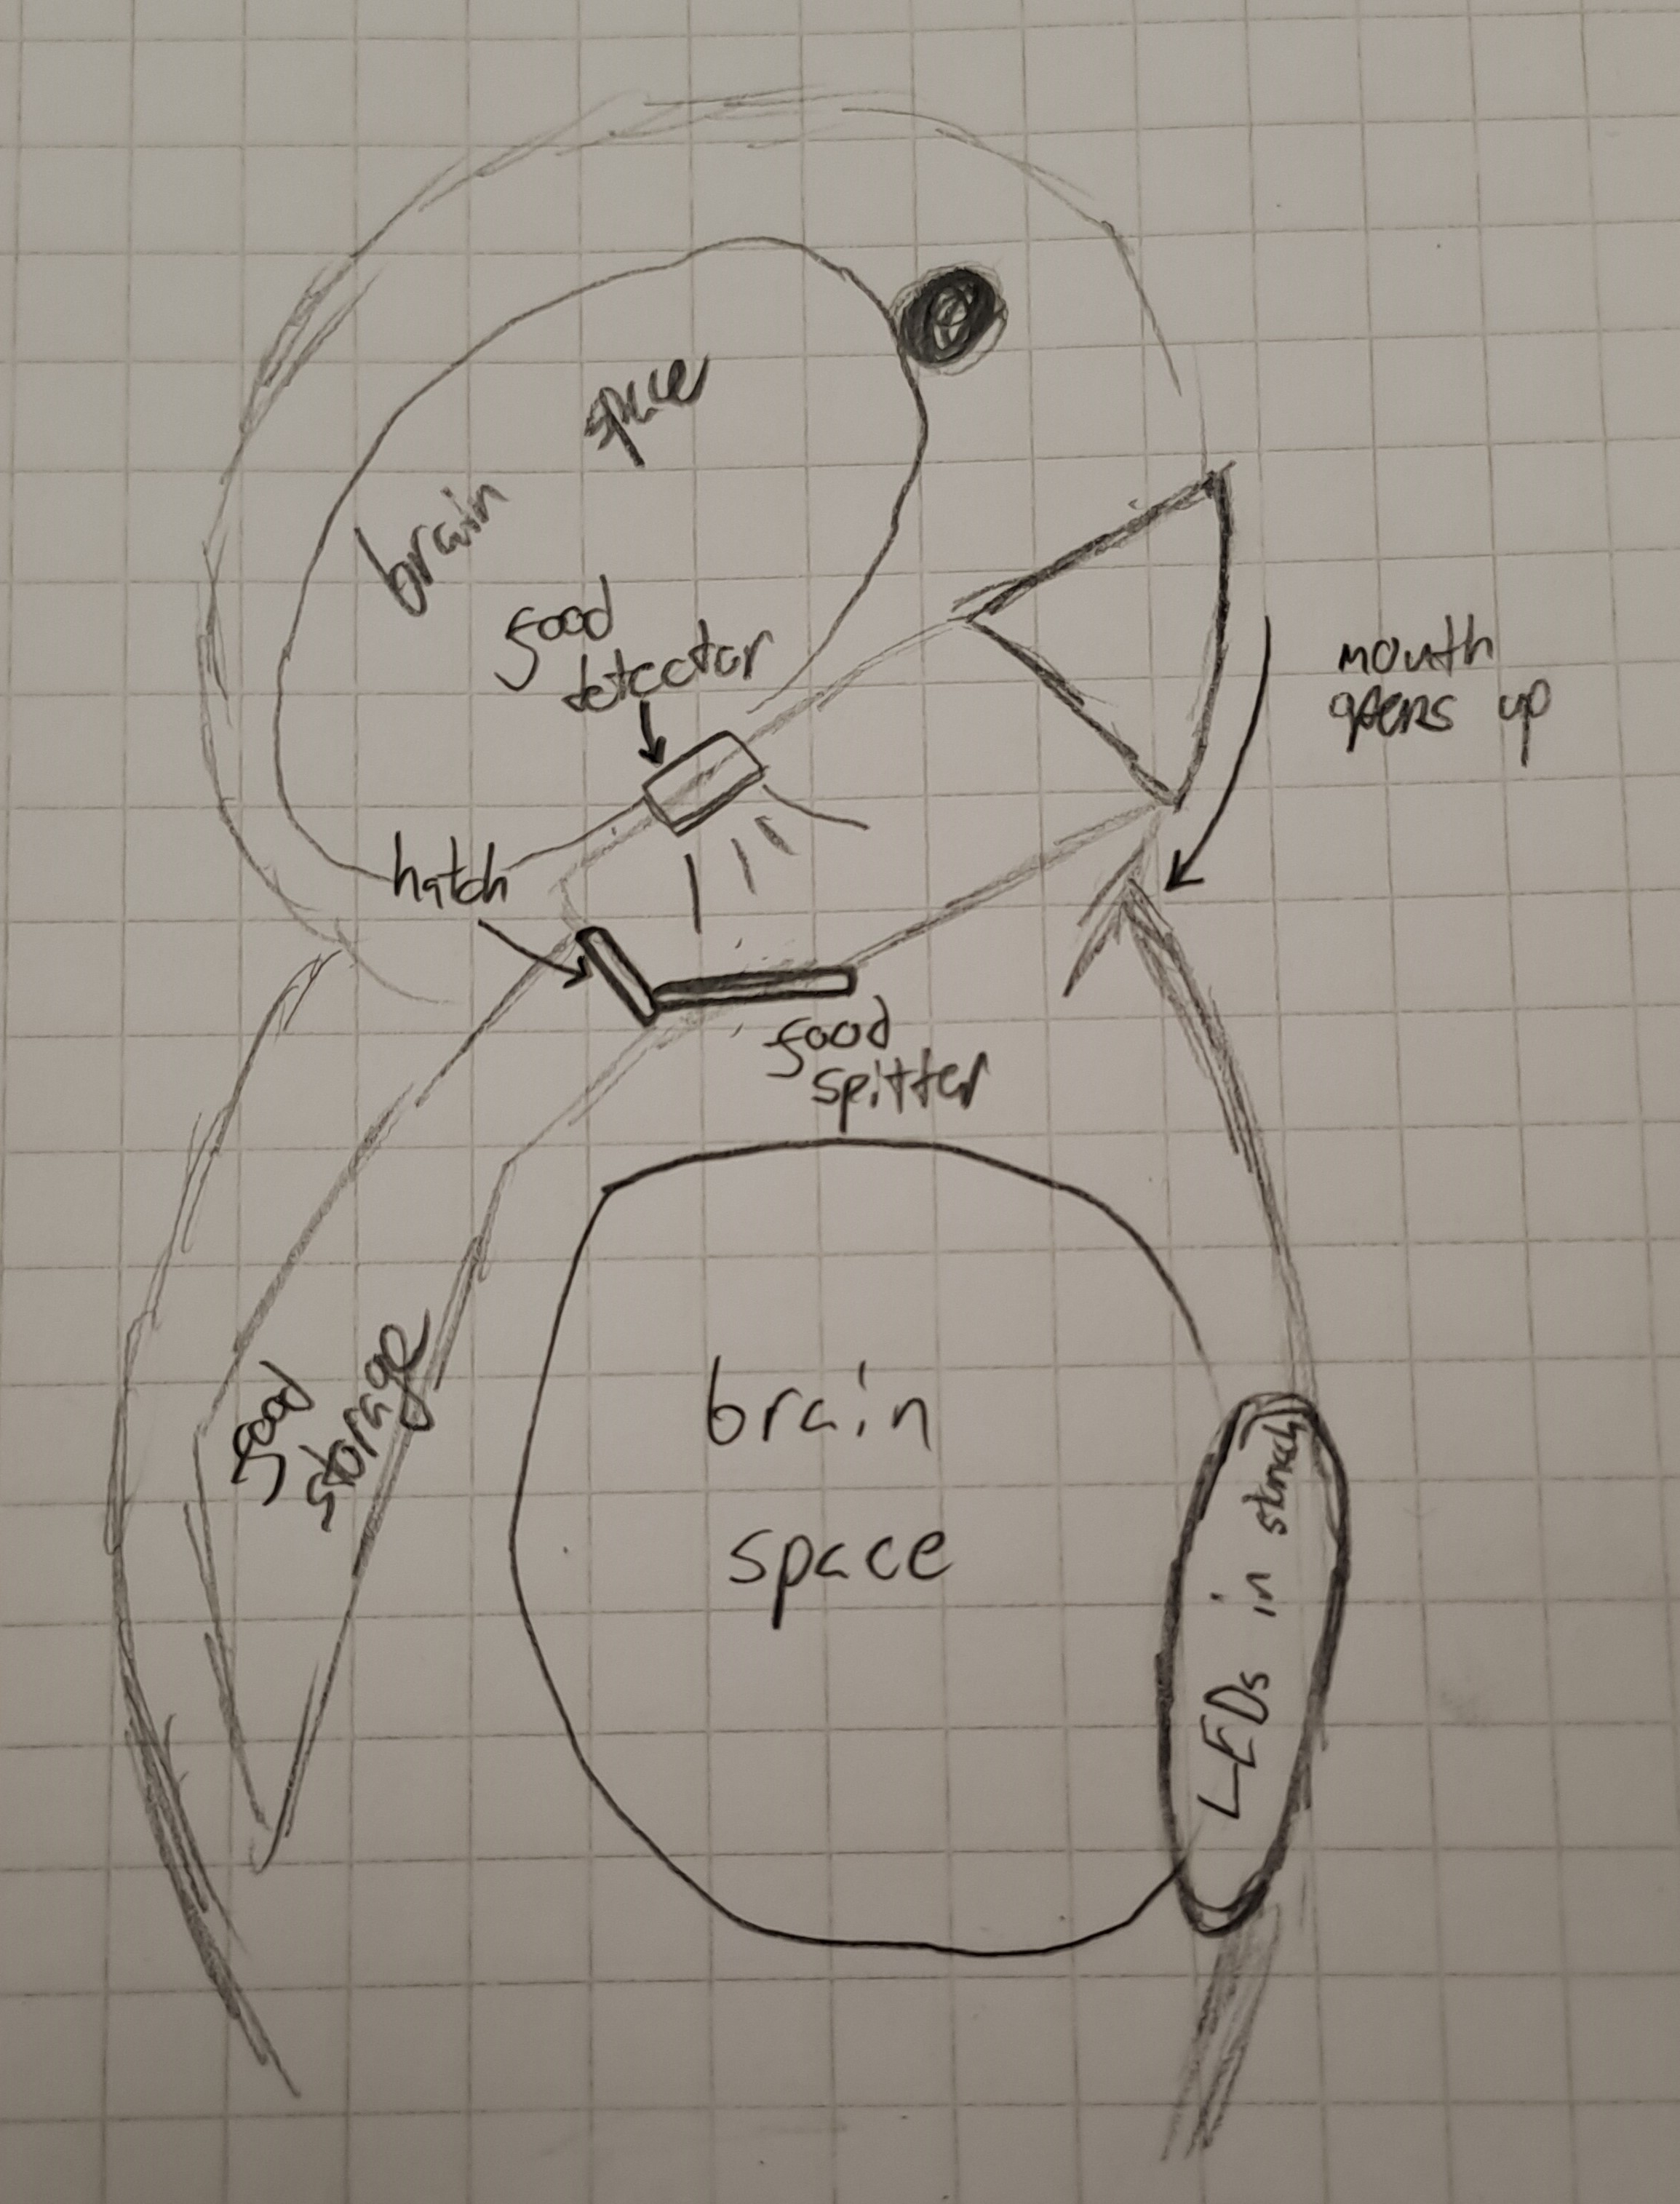 brain space
food
detector
mouth
opens up
hatch
food
spitter
food
storage
brain
space
LEDs in stomach